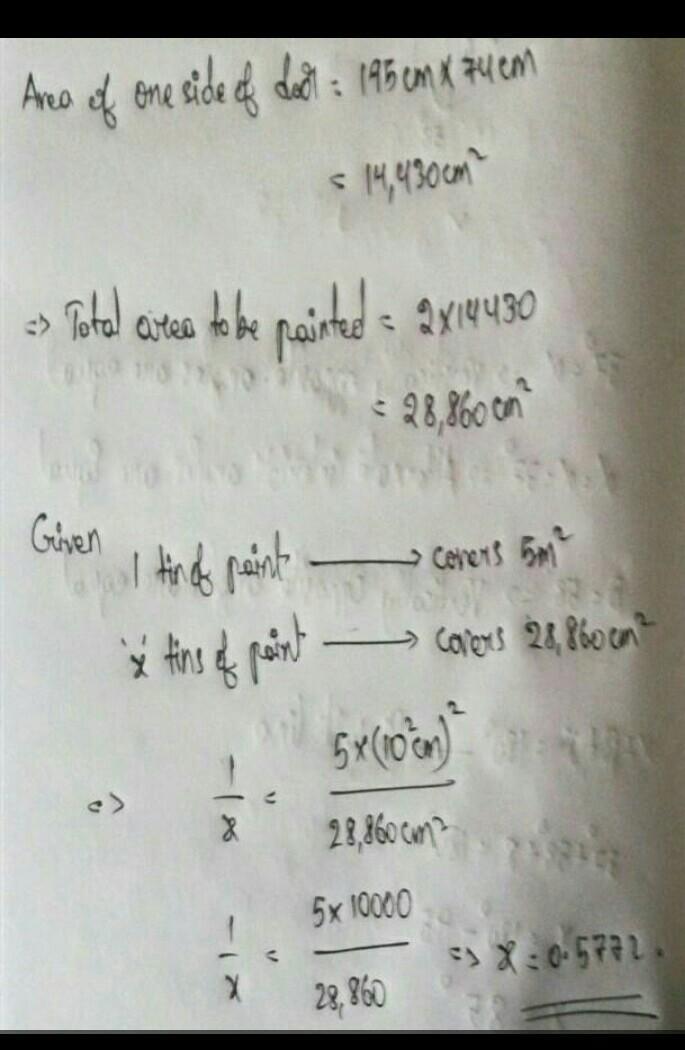 Area of one side of door = 195cm x 74cm
= 14,430cm²
=> Total area to be painted = 2x14430
= 28,860cm²
Given
1 tin of paint → covers 5m²
'x' tins of paint → covers 28,860cm²
=> 1/x = 5x(10²cm)²/28,860cm²
1/x = 5x10000/28,860 => x = 0.5772.